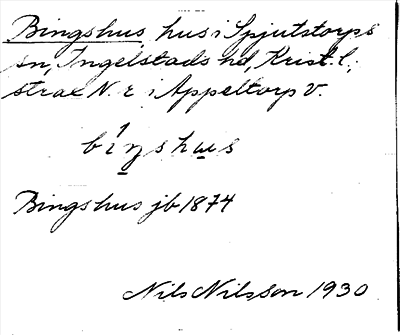 Bingshus, hus i Spjutstorps
sn, Ingelstads hd, Krist. l;
strax N. r i Appeltorp v.
bíŋshus
Bingshus jb 1874
Nils Nilsson 1930